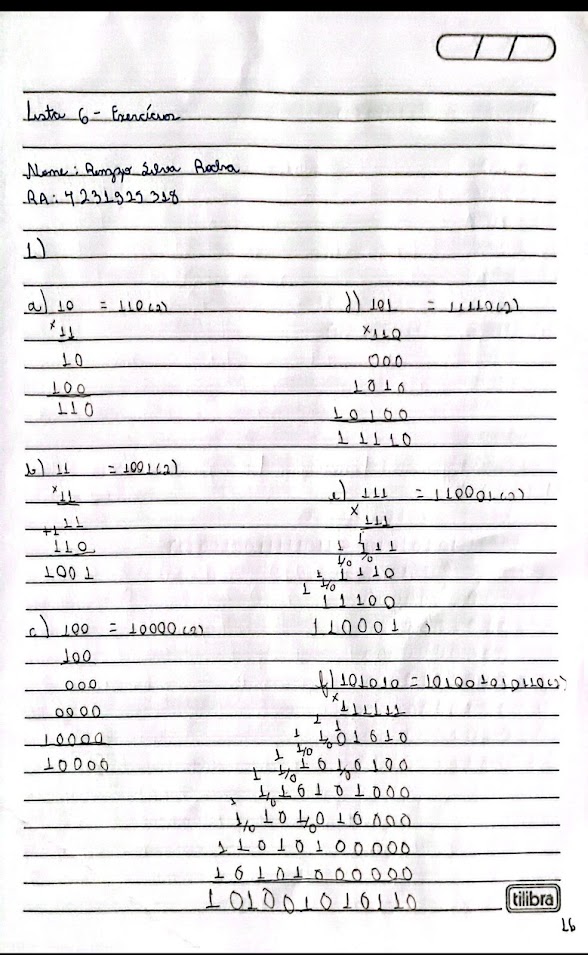 Lista 6 - Exercícios
Nome: Renzzo Silva Rocha
RA: 4231925318
1)
a) 10 = 110(2)
x 11
10
100
110
b) 11 = 1001(2)
x 11
+1 11
110
1001
c) 100 = 10000(2)
100
000
0000
10000
10000
d) 101 = 11110(2)
x 110
000
1010
10100
11110
e) 111 = 110001(2)
x 111
111
1110
11100
110001
f) 101010 = 101001010110(2)
x 111111
101010
1010100
10101000
101010000
1010100000
101001010110
tilibra
16